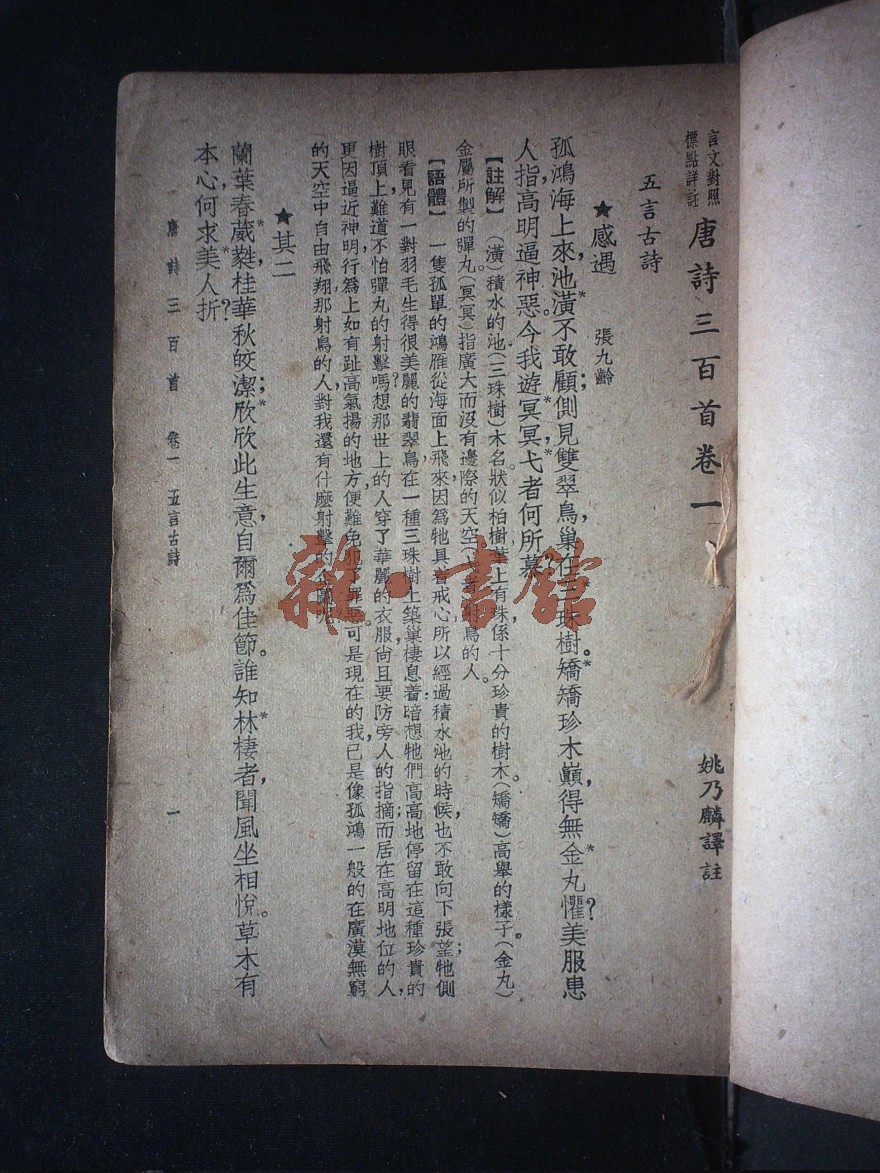 言文對照
標點詳註
唐詩三百首卷一
姚乃麟譯註
五言古詩
★感遇 張九齡
孤鴻海上來，池潢不敢顧；側見雙翠鳥，巢在三珠樹。矯矯珍木巔，得無金丸懼？美服患
人指，高明逼神惡。今我遊冥冥，弋者何所慕？
【註解】（潢）積水的池。（三珠樹）木名。狀似柏樹，葉上有珠，係十分珍貴的樹木。（矯矯）高舉的樣子。（金丸）
金屬所製的彈丸。（冥冥）指廣大而沒有邊際的天空。（弋者）射鳥的人。
【語體】一隻孤單的鴻雁，從海面上飛來，因爲牠具着戒心，所以經過積水池的時候，也不敢向下張望；牠側
眼看見有一對羽毛生得很美麗的翡翠鳥，在一種三珠樹上築巢棲息着；暗想牠們高高地停留在這種珍貴的
樹頂上，難道不怕彈丸的射擊嗎？想那世上的人，穿了華麗的衣服，尚且要防旁人的指摘；而居在高明地位的人，
更因逼近神明，行爲上如有趾高氣揚的地方，便難免犯了罪惡。可是現在的我，已是像孤鴻一般的在廣漠無窮
的天空中自由飛翔，那射鳥的人，對我還有什麼射擊的企圖呢？
★其二
蘭葉春葳蕤，桂華秋皎潔；欣欣此生意，自爾爲佳節。誰知林棲者，聞風坐相悅。草木有
本心，何求美人折？
唐詩三百首 卷一 五言古詩 一
雜·書館